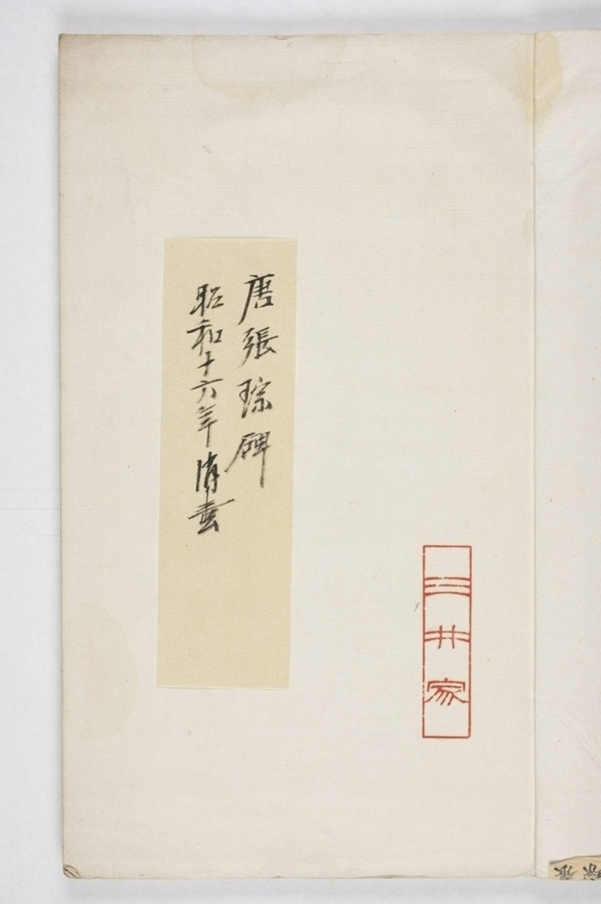 唐張琮碑
昭和十六年清書
三井家